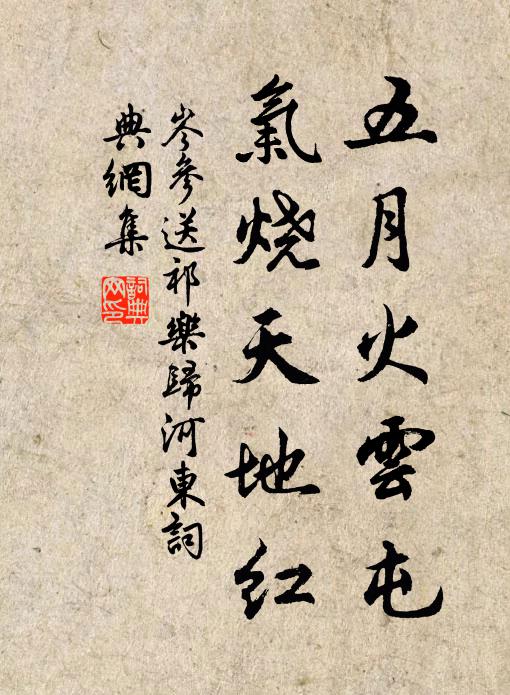 五月火雲屯
氣烧天地红
岑參送祁樂歸河東詞
典網集
詞典
网印